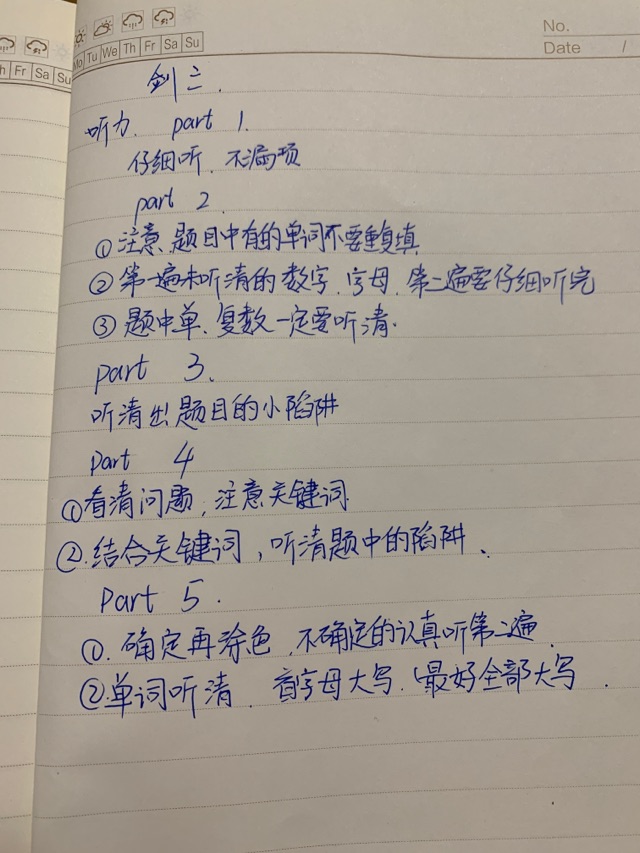 No.
Date /
h Fr Sa Su
Mo Tu We Th Fr Sa Su
剑二.
听力. part 1.
仔细听.不漏项
part 2.
①注意.题目中有的单词不要重复填
②第一遍未听清的数字.字母.第二遍要仔细听完
③题中单.复数一定要听清.
part 3.
听清出题目的小陷阱
part 4
①看清问题,注意关键词.
②.结合关键词,听清题中的陷阱、
Part 5.
①.确定再涂色.不确定的认真听第二遍.
②单词听清.首字母大写.(最好全部大写.